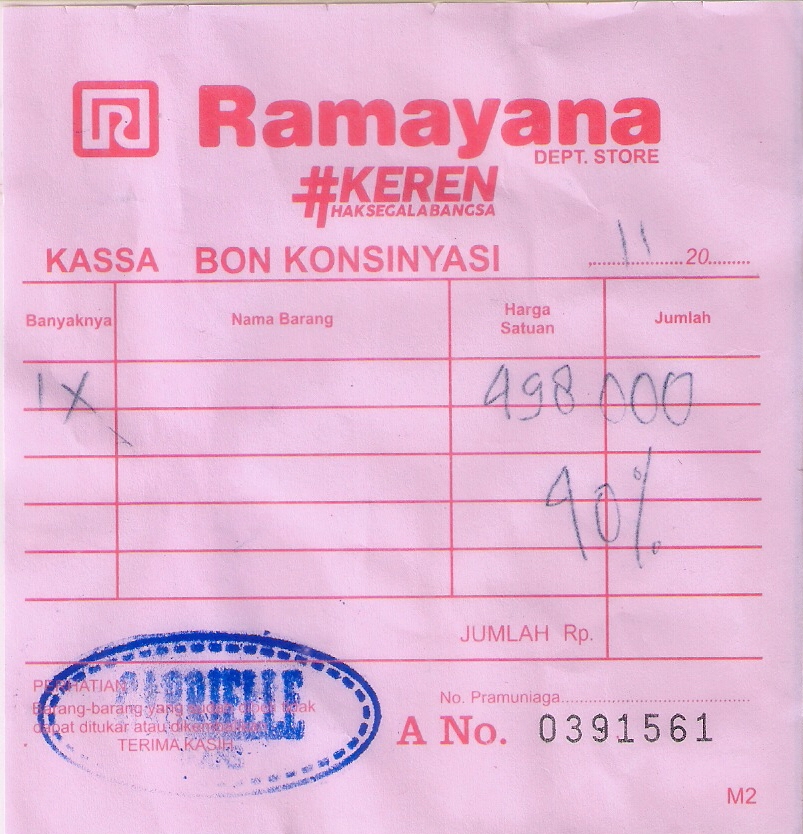 Ramayana
DEPT. STORE
#KEREN
HAK SEGALA BANGSA
KASSA BON KONSINYASI
11 20
Banyaknya Nama Barang Harga Satuan Jumlah
1 X 498.000
40%
JUMLAH Rp.
GABRIELLE
PERHATIAN
Barang-barang yang sudah dibeli tidak
dapat ditukar atau dikembalikan
TERIMA KASIH
No. Pramuniaga
A No. 0391561
M2